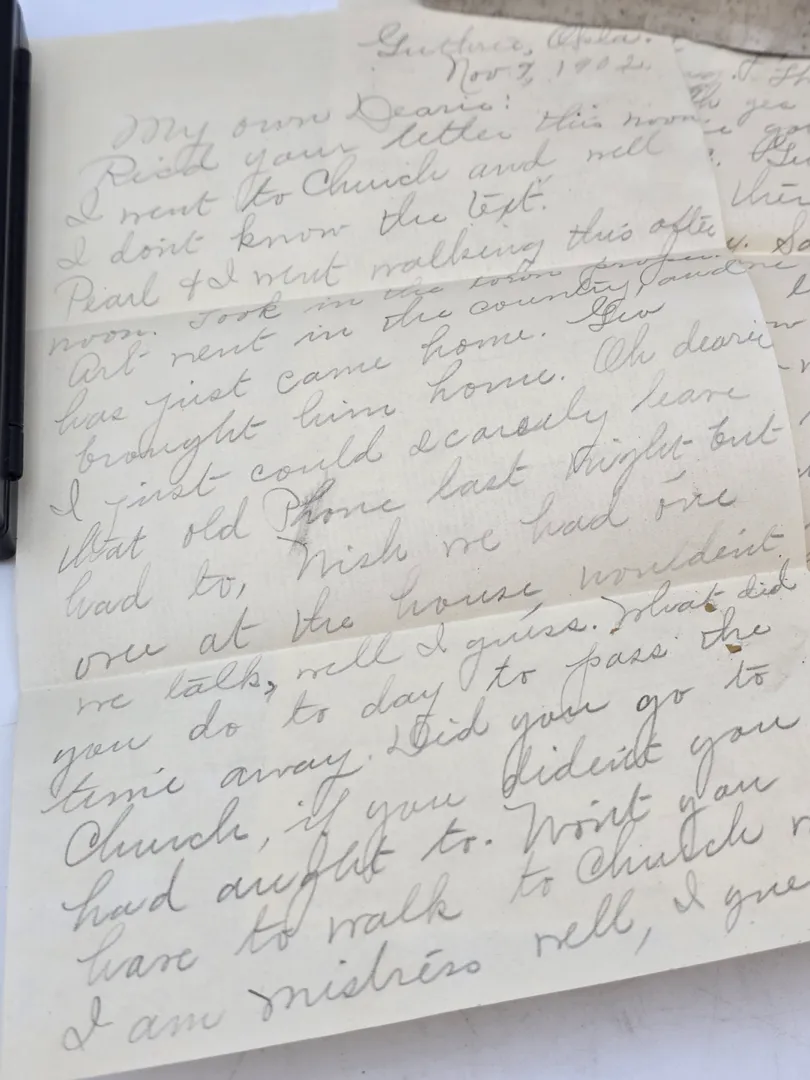 Guthrie, Okla.
Nov 9, 1902
My own Dearie:
Rec'd your letter this noon.
I went to Church and well
I dont know the text.
Pearl & I went walking this after
noon. Took in the town proper.
Art went in the country, and
has just came home. Geo
brought him home. Oh dearie
I just could scarcely leave
that old Phone last night but
had to, Wish we had one
over at the house wouldent
we talk, well I guess. What did
you do to day to pass the
time away. Did you go to
Church, if you dident you
had aught to. Wont you
have to walk to Church
I am mistress well, I gue